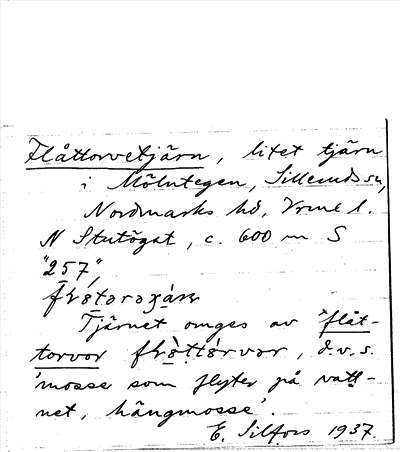 Flåttorvetjärn, litet tjärn
i Mölntegen, Sillerudssn,
Nordmarks hd, Vrml l.
N Stutögat, c. 600 m S
"257",
Tjärnet omges av 'flåt-
torvor, d.v.s.
'mosse som flyter på vatt-
net, hängmosse'.
E. Silfors 1937.